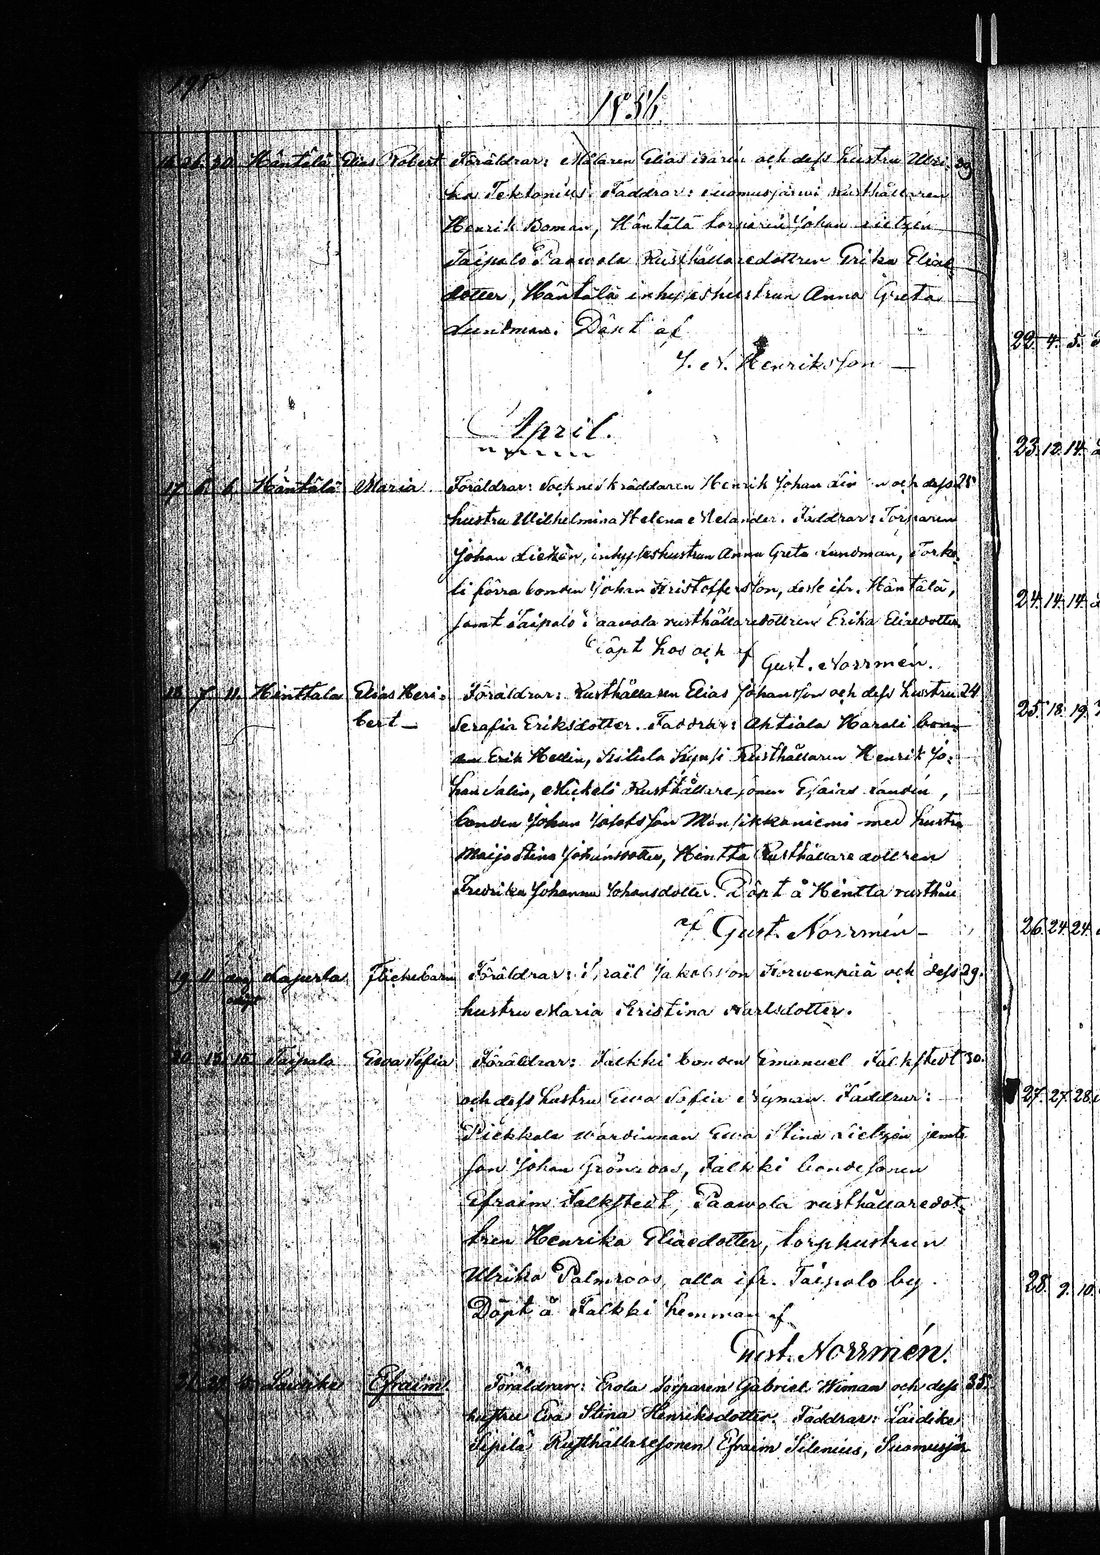 198.
1856.
16. 26. 30. Häntälä Elias Robert Föräldrar: Målaren Elias och dess hustru Ulri- 39
ka Tektonius. Faddrar: Suomusjärwi rusthållaren
Henrik Boman, Häntälä torparen Johan
Taipalo Paawola Rusthållaredottren Erika Elias
dotter, Häntälä inhyseshustrun Anna Greta
Lundman. Döpt af
J. N. Henriksson
April.
17 5 6 Häntälä Maria Föräldrar: Sockneskräddaren Henrik Johan och dess 28
hustru Wilhelmina Helena Melander. Faddrar: Torparen
Johan inhyseshustrun Anna Greta Lundman,
förra bonden Johan Kristoffersson, ifr. Häntälä,
samt Taipalo Paawola rusthållaredottren Erika Eliasdotter
Döpt hos och af Gust. Norrmén.
18 7 11. Hinttala Elias Heri- Föräldrar: Rusthållaren Elias Johansson och dess hustru 24
bert Serafia Eriksdotter. Faddrar: Ahtiala Harali bon-
den Erik Hellin, Rusthållaren Henrik Jo-
han Salin, Mickeli Rusthållaresonen Esaias
bonden Johan Mansikkaniemi med hustru
Maija Stina Johansdotter, Hintta Rusthållaredottren
Fredrika Johanna Johansdotter. Döpt å Hintta rusthåll
af Gust. Norrmén
19 11 Lajurla Flickebarn Föräldrar: Israël Jakobsson Korwenpää och dess 29.
hustru Maria Kristina Karlsdotter.
20 13 15 Taipalo Ewa Sofia Föräldrar: Falkki bonden Emanuel Falkstedt 30.
och dess hustru Ewa Sofia Nyman. Faddrar:
Piekkala wärdinnan Ewa Stina jemte
son Johan Grönroos, Falkki bondesonen
Efraim Falkstedt, Paawola rusthållaredot-
tren Henrika Eliaedotter, torphustrun
Ulrika Palmroos, alla ifr. Taipalo by.
Döpt å Falkki hemman af
Gust. Norrmén.
Laidike Efraim. Föräldrar: Erola torparen Gabriel Wiman och dess 35.
hustru Eva Stina Henriksdotter. Faddrar: Laidike
Sipilä Rusthållaresonen Efraim Silenius, Suomusjär
22. 4. 5.
23. 12. 14.
24. 14. 14.
25. 18. 19.
26. 24. 24.
27. 27. 28.
28. 9. 10.